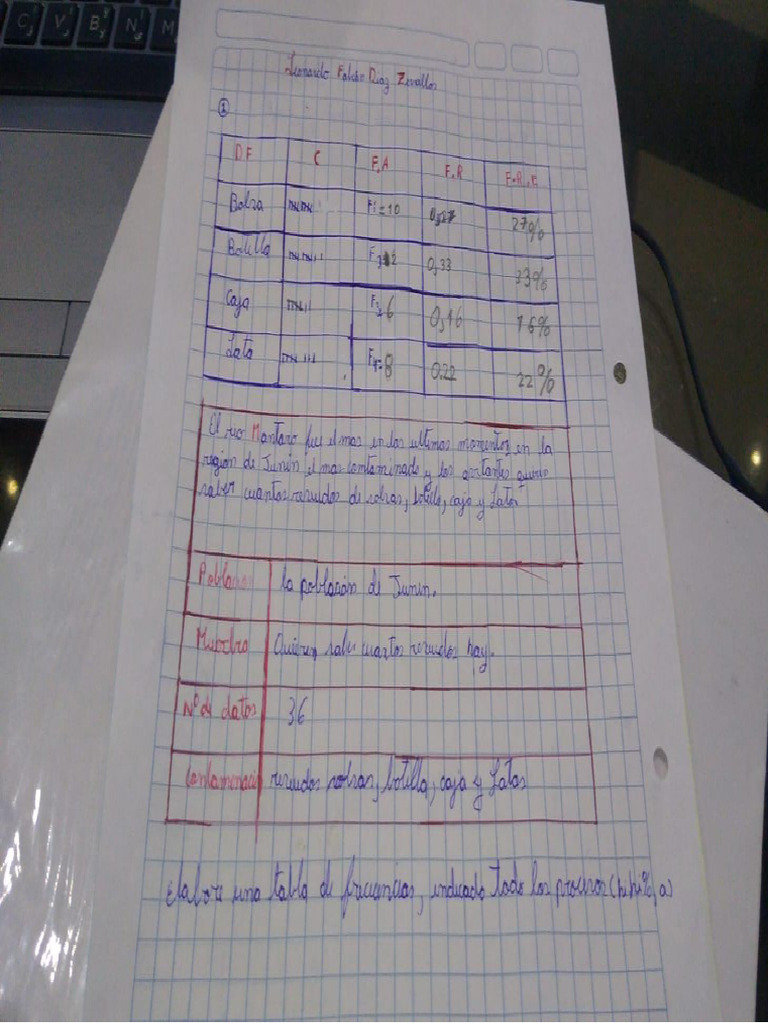 C V B N M
Leonardo Fabian Diaz Zevallos
1
DF C F.A F.R F.R.C
Bolsa F1=10 0,27 27%
Botilla F2=12 0,33 33%
Caja F3=6 0,16 16%
Lata F4=8 0,22 22%
El rio Mantaro fue el mas en los ultimos momentos en la
region de Junin el mas contaminado y los quieren
saber cuantos residuos de bolsas, botilla, caja y Latas
Poblacion la población de Junin.
Muestra Quieren saber cuantos residuos hay.
Nº de datos 36
Contaminacion residuos bolsas, botilla, caja y Latas
Elabore una tabla de frecuencias, indicado todo los procesos (hi,hi%, a)